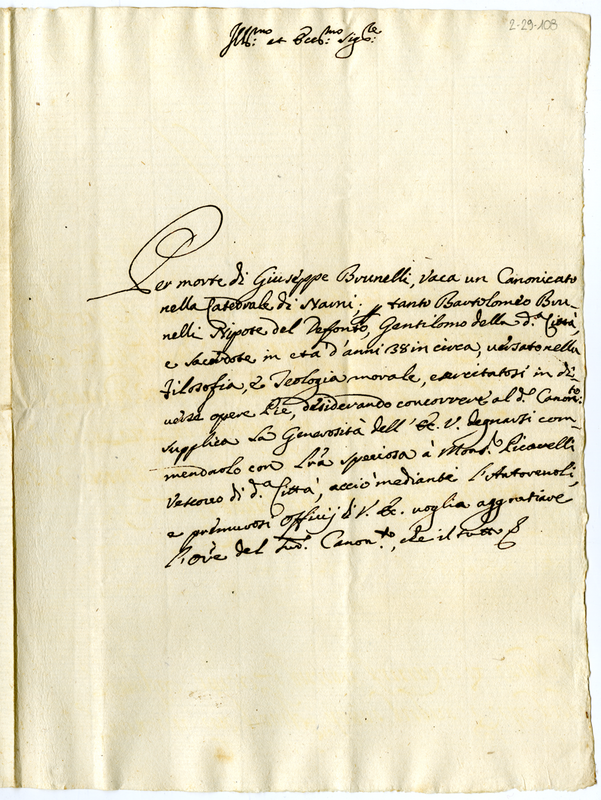 2-29-108
Ill:mo et Ecc:mo Sig:re
Per morte di Giuseppe Brunelli, vaca un Canonicato
nella Catedrale di Narni; p tanto Bartolomeo Bru-
nelli Nipote del Deffonto, Gentilomo della d.a Città,
e Sacerdote in età d'anni 38 in circa, versato nella
filosofia, e Teologia morale, esercitatosi in di-
verse opere Pie, desiderando concorrere al d.o Canon:to
supplica la Generosità dell' Ec. V. degnarsi com-
mendarlo con l'ra speciosa à Mons.r Picarelli
Vescovo di d.a Città, acciò mediante l'Autorevoli,
e premurosi officij di V. Ec. voglia aggratiare
l'ōre del sud.o Canon.to, che il tutto &